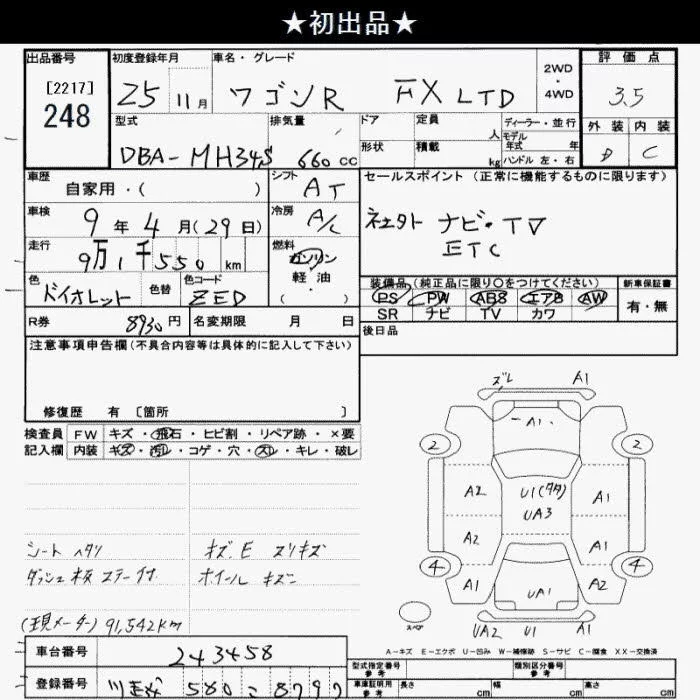 ★初出品★
出品番号
[2217]
248
初度登録年月
25 11月
車名・グレード
ワゴンR FX LTD
2WD
・
4WD
評価点
3.5
外装 内装
D C
型式
DBA-MH34S
排気量
660 cc
ドア
形状
定員
人
積載
kg
ディーラー・並行
モデル
年式 年
ハンドル 左・右
車歴
自家用・( )
シフト
AT
セールスポイント (正常に機能するものに限ります)
ナビ・TV
ETC
車検
9年4月(29日)
冷房
A/C
走行
9万1千550km
燃料
ガソリン
軽油
・
( )
色
バイオレット
色替
色コード
ZED
装備品(純正品に限り〇をつけてください)
PS PW ABS エアB AW
SR ナビ TV カワ
新車保証書
有・無
R券
8930円
名変期限 月 日
後日品
注意事項申告欄(不具合内容等は具体的に記入して下さい)
修復歴 有 [箇所 ]
検査員
記入欄
FW キズ・飛石・ヒビ割・リペア跡・×要
内装 キズ・汚レ・コゲ・穴・スレ・キレ・破レ
ズレ A1
A1
2 2
A2 U1(タタ) A1
UA3
A2 A1
4 4
A1 UA1 A2
スペア
UA2 U1 A1
シート ヘタリ
キズ、E スリキズ
ダッシュ板 ステー付
ホイール キズ
(現メーター) 91,542km
A-キズ E-エクボ U-凹み W-補修跡 S-サビ C-腐食 XX-交換済
車台番号
243458
型式指定番号
参考
類別区分番号
参考
登録番号
580
車庫証明用
参考
長さ cm
幅 cm
高さ cm